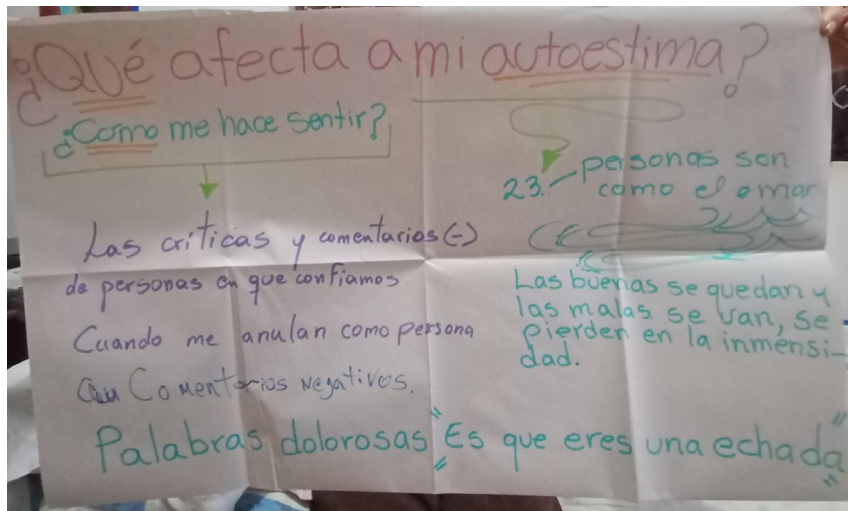 ¿Qué afecta a mi autoestima?
¿Como me hace sentir?
Las críticas y comentarios (-)
de personas en que confiamos
Cuando me anulan como persona
Comentarios Negativos.
23.- personas son
como el mar
Las buenas se quedan y
las malas se van, se
pierden en la inmensi-
dad.
Palabras dolorosas "Es que eres una echada"